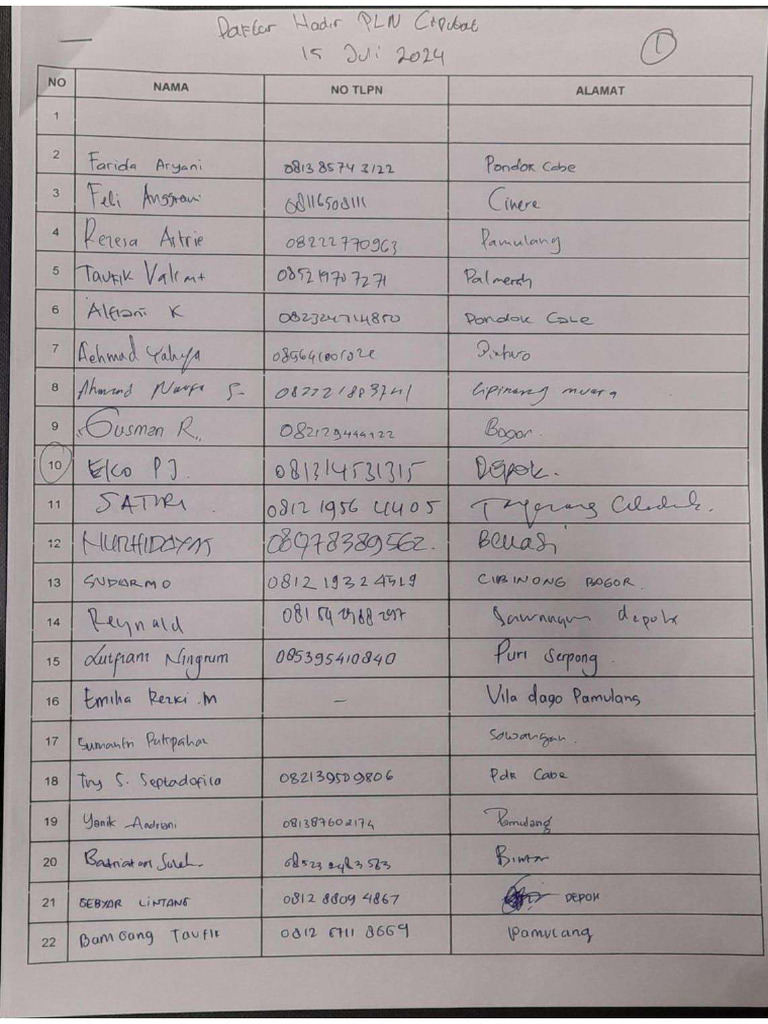 Daftar Hadir PLN Ciputat
15 Juli 2024
1
NO NAMA NO TLPN ALAMAT
1
2 Farida Aryani 081385743122 Pondok Cabe
3 Feli Anggraini 08116508111 Cinere
4 Rezesa Astrie 08222770963 Pamulang
5 Taufik 085219707271 Palmerah
6 Alfiani K 082324714850 Pondok Cabe
7 Achmad Yahya
8 Ahmad S. Cipinang muara
9 Gusman R. Bogor.
10 EKO PJ. 081314531315 Depok.
11 SATIRI 0812 1956 4405 Tangerang Ciledug.
12 NURHIDAYAT 08978389562. BEKASI
13 SUDARMO 0812 1932 4519 CIBINONG BOGOR.
14 Reynald Sawangan depok
15 Lutfiani Ningrum 085395410840 Puri Serpong
16 Emilia Rezki .M – Vila dago Pamulang
17 Sumantri Sawangan.
18 Try S. Septadofila 082139509806 Pdk Cabe
19 Yanik Andriani 081387602174 Pamulang
20 Bintaro
21 GEBYAR LINTANG 0812 8809 4867 DEPOK
22 Bambang Taufik 0812 8669 Pamulang